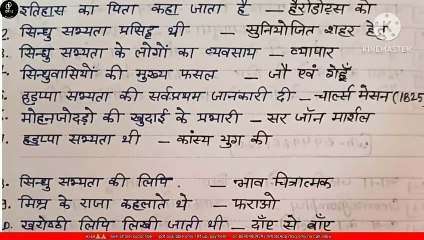 इतिहास का पिता कहा जाता है — हेरोडोट्स को
2. सिन्धु सभ्यता प्रसिद्ध थी — सुनियोजित शहर हेतु
सिन्धु सभ्यता के लोगों का व्यवसाय — व्यापार
सिन्धुवासियों की मुख्य फसल — जौ एवं गेहूँ
हड़प्पा सभ्यता की सर्वप्रथम जानकारी दी — चार्ल्स मेसन (1825
मोहनजोदड़ो की खुदाई के प्रभारी — सर जॉन मार्शल
हड़प्पा सभ्यता थी — कांस्य युग की
सिन्धु सभ्यता की लिपि — भाव चित्रात्मक
मिश्र के राजा कहलाते थे — फराओ
खरोष्ठी लिपि लिखी जाती थी — दाँए से बाँए
KINEMASTER